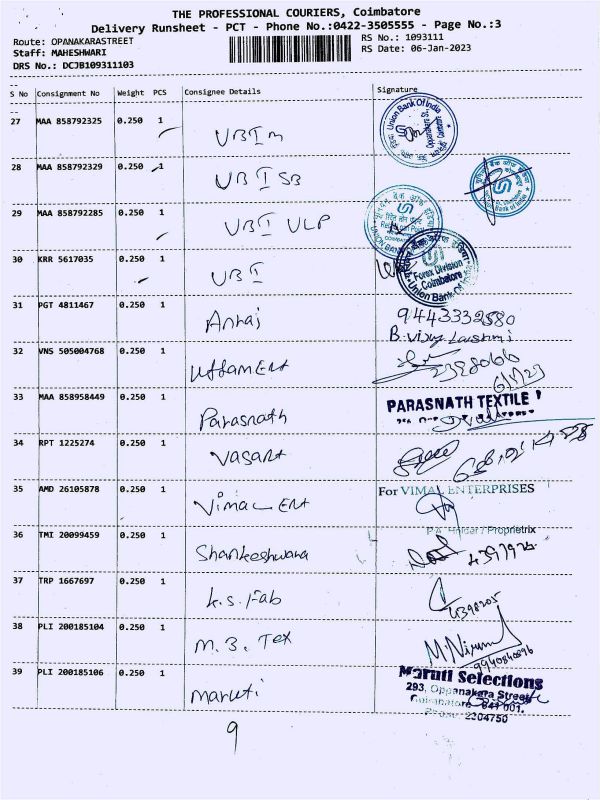 THE PROFESSIONAL COURIERS, Coimbatore
Delivery Runsheet - PCT - Phone No.:0422-3505555 - Page No.:3
Route: OPANAKARASTREET
Staff: MAHESHWARI
DRS No.: DCJB109311103
RS No.: 1093111
RS Date: 06-Jan-2023
S No Consignment No Weight PCS Consignee Details Signature
27 MAA 858792325 0.250 1 UBI m
Union Bank Of India
28 MAA 858792329 0.250 1 UBI SB
29 MAA 858792285 0.250 1 UBI ULP
30 KRR 5617035 0.250 1 UBI
Forex Division
Coimbatore
Union Bank Of India
31 PGT 4811467 0.250 1 Anraj 9443332580
B. Vijay Lakshmi
32 VNS 505004768 0.250 1 Uttam Ent 2398066
6/1/23
33 MAA 858958449 0.250 1 Parasnath PARASNATH TEXTILE
34 RPT 1225274 0.250 1 Vasant
35 AMD 26105878 0.250 1 Vimal Ent For VIMAL ENTERPRISES
Proprietrix
36 TMI 20099459 0.250 1 Shankeshwara 4397924
37 TRP 1667697 0.250 1 K.S. Fab 4398205
38 PLI 200185104 0.250 1 M.B. Tex M. Nirmal
9940840896
39 PLI 200185106 0.250 1 Maruti Maruti Selections
293, Oppanakara Street
Coimbatore 641 001.
Phone: 2304750
9